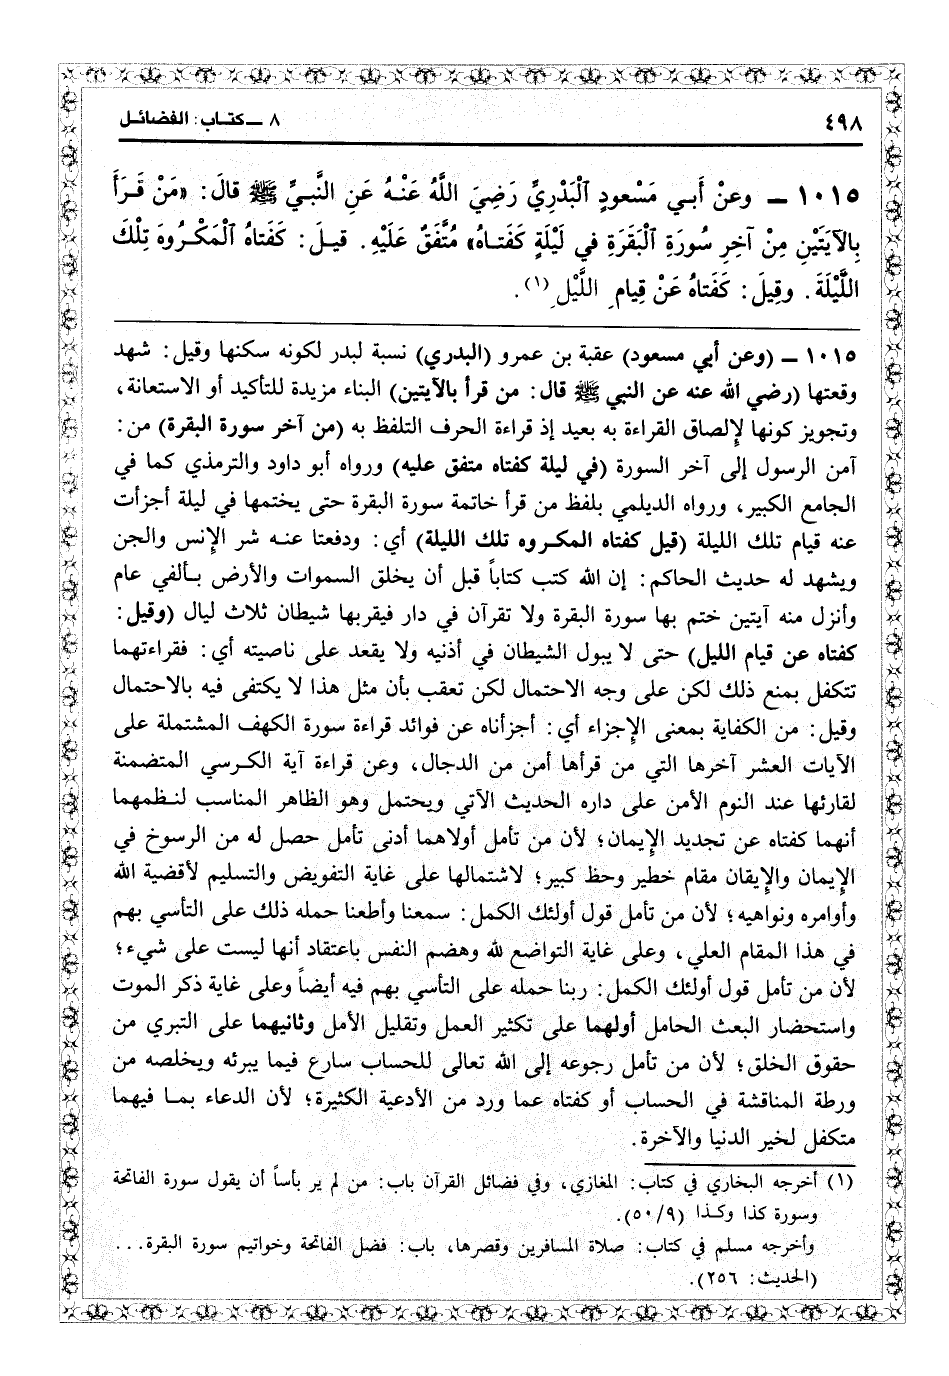 ٤٩٨
٨ ــ كتـاب: الفضائـل
١٠١٥ ــ وعنْ أَبـي مَسْعودٍ ٱلْبَدْرِيِّ رَضِيَ اللَّهُ عَنْـهُ عَنِ النَّبـيِّ ﷺ قالَ: «مَنْ قَـرَأَ
بِالآيَتَيْنِ مِنْ آخِرِ سُورَةِ ٱلْبَقَرَةِ في لَيْلَةٍ كَفَتـاهُ» مُتَّفَقٌ عَلَيْهِ. قيـلَ: كَفَتاهُ ٱلْمَكْـروهَ تِلْكَ
اللَّيْلَةَ. وقِيلَ: كَفَتاهُ عَنْ قِيامِ اللَّيْلِ(١).
١٠١٥ ــ (وعن أبي مسعود) عقبة بن عمرو (البدري) نسبة لبدر لكونه سكنها وقيل: شهد
وقعتها (رضي الله عنه عن النبي ﷺ قال: من قرأ بالآيتين) الباء مزيدة للتأكيد أو الاستعانة،
وتجويز كونها لإلصاق القراءة به بعيد إذ قراءة الحرف التلفظ به (من آخر سورة البقرة) من:
آمن الرسول إلى آخر السورة (في ليلة كفتاه متفق عليه) ورواه أبو داود والترمذي كما في
الجامع الكبير، ورواه الديلمي بلفظ من قرأ خاتمة سورة البقرة حتى يختمها في ليلة أجزأت
عنه قيام تلك الليلة (قيل كفتاه المكروه تلك الليلة) أي: ودفعتا عنـه شر الإنس والجن
ويشهد له حديث الحاكم: إن الله كتب كتاباً قبل أن يخلق السموات والأرض بـألفي عام
وأنزل منه آيتين ختم بها سورة البقرة ولا تقرآن في دار فيقربها شيطان ثلاث ليال (وقيل:
كفتاه عن قيام الليل) حتى لا يبول الشيطان في أذنيه ولا يقعد على ناصيته أي: فقراءتهما
تتكفل بمنع ذلك لكن على وجه الاحتمال لكن تعقب بأن مثل هذا لا يكتفى فيه بالاحتمال
وقيل: من الكفاية بمعنى الإجزاء أي: أجزأناه عن فوائد قراءة سورة الكهف المشتملة على
الآيات العشر آخرها التي من قرأها أمن من الدجال، وعن قراءة آية الكـرسي المتضمنة
لقارئها عند النوم الأمن على داره الحديث الآتي ويحتمل وهو الظاهر المناسب لنـظمهما
أنهما كفتاه عن تجديد الإيمان؛ لأن من تأمل أولاهما أدنى تأمل حصل له من الرسوخ في
الإيمان والإيقان مقام خطير وحظ كبير؛ لاشتمالها على غاية التفويض والتسليم لأقضية الله
وأوامره ونواهيه؛ لأن من تأمل قول أولئك الكمل: سمعنا وأطعنا حمله ذلك على التأسي بهم
في هذا المقام العلي، وعلى غاية التواضع لله وهضم النفس باعتقاد أنها ليست على شيء؛
لأن من تأمل قول أولئك الكمل: ربنا حمله على التأسي بهم فيه أيضاً وعلى غاية ذكر الموت
واستحضار البعث الحامل أولهما على تكثير العمل وتقليل الأمل وثانيهما على التبري من
حقوق الخلق؛ لأن من تأمل رجوعه إلى الله تعالى للحساب سارع فيما يبرئه ويخلصه من
ورطة المناقشة في الحساب أو كفتاه عما ورد من الأدعية الكثيرة؛ لأن الدعاء بمـا فيهما
متكفل لخير الدنيا والآخرة.
(١) أخرجه البخاري في كتاب: المغازي، وفي فضائل القرآن باب: من لم ير بأساً أن يقول سورة الفاتحة
وسورة كذا وكـذا (٥٠/٩).
وأخرجه مسلم في كتاب: صلاة المسافرين وقصرها، باب: فضل الفاتحة وخواتيم سورة البقرة...
(الحديث: ٢٥٦).